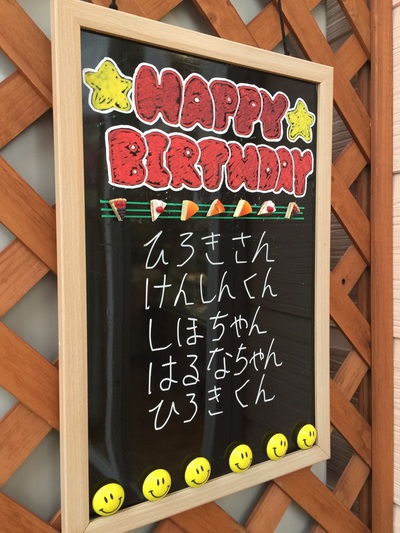 HAPPY
BIRTHDAY
ひろきさん
けんしんくん
しほちゃん
はるなちゃん
ひろきくん